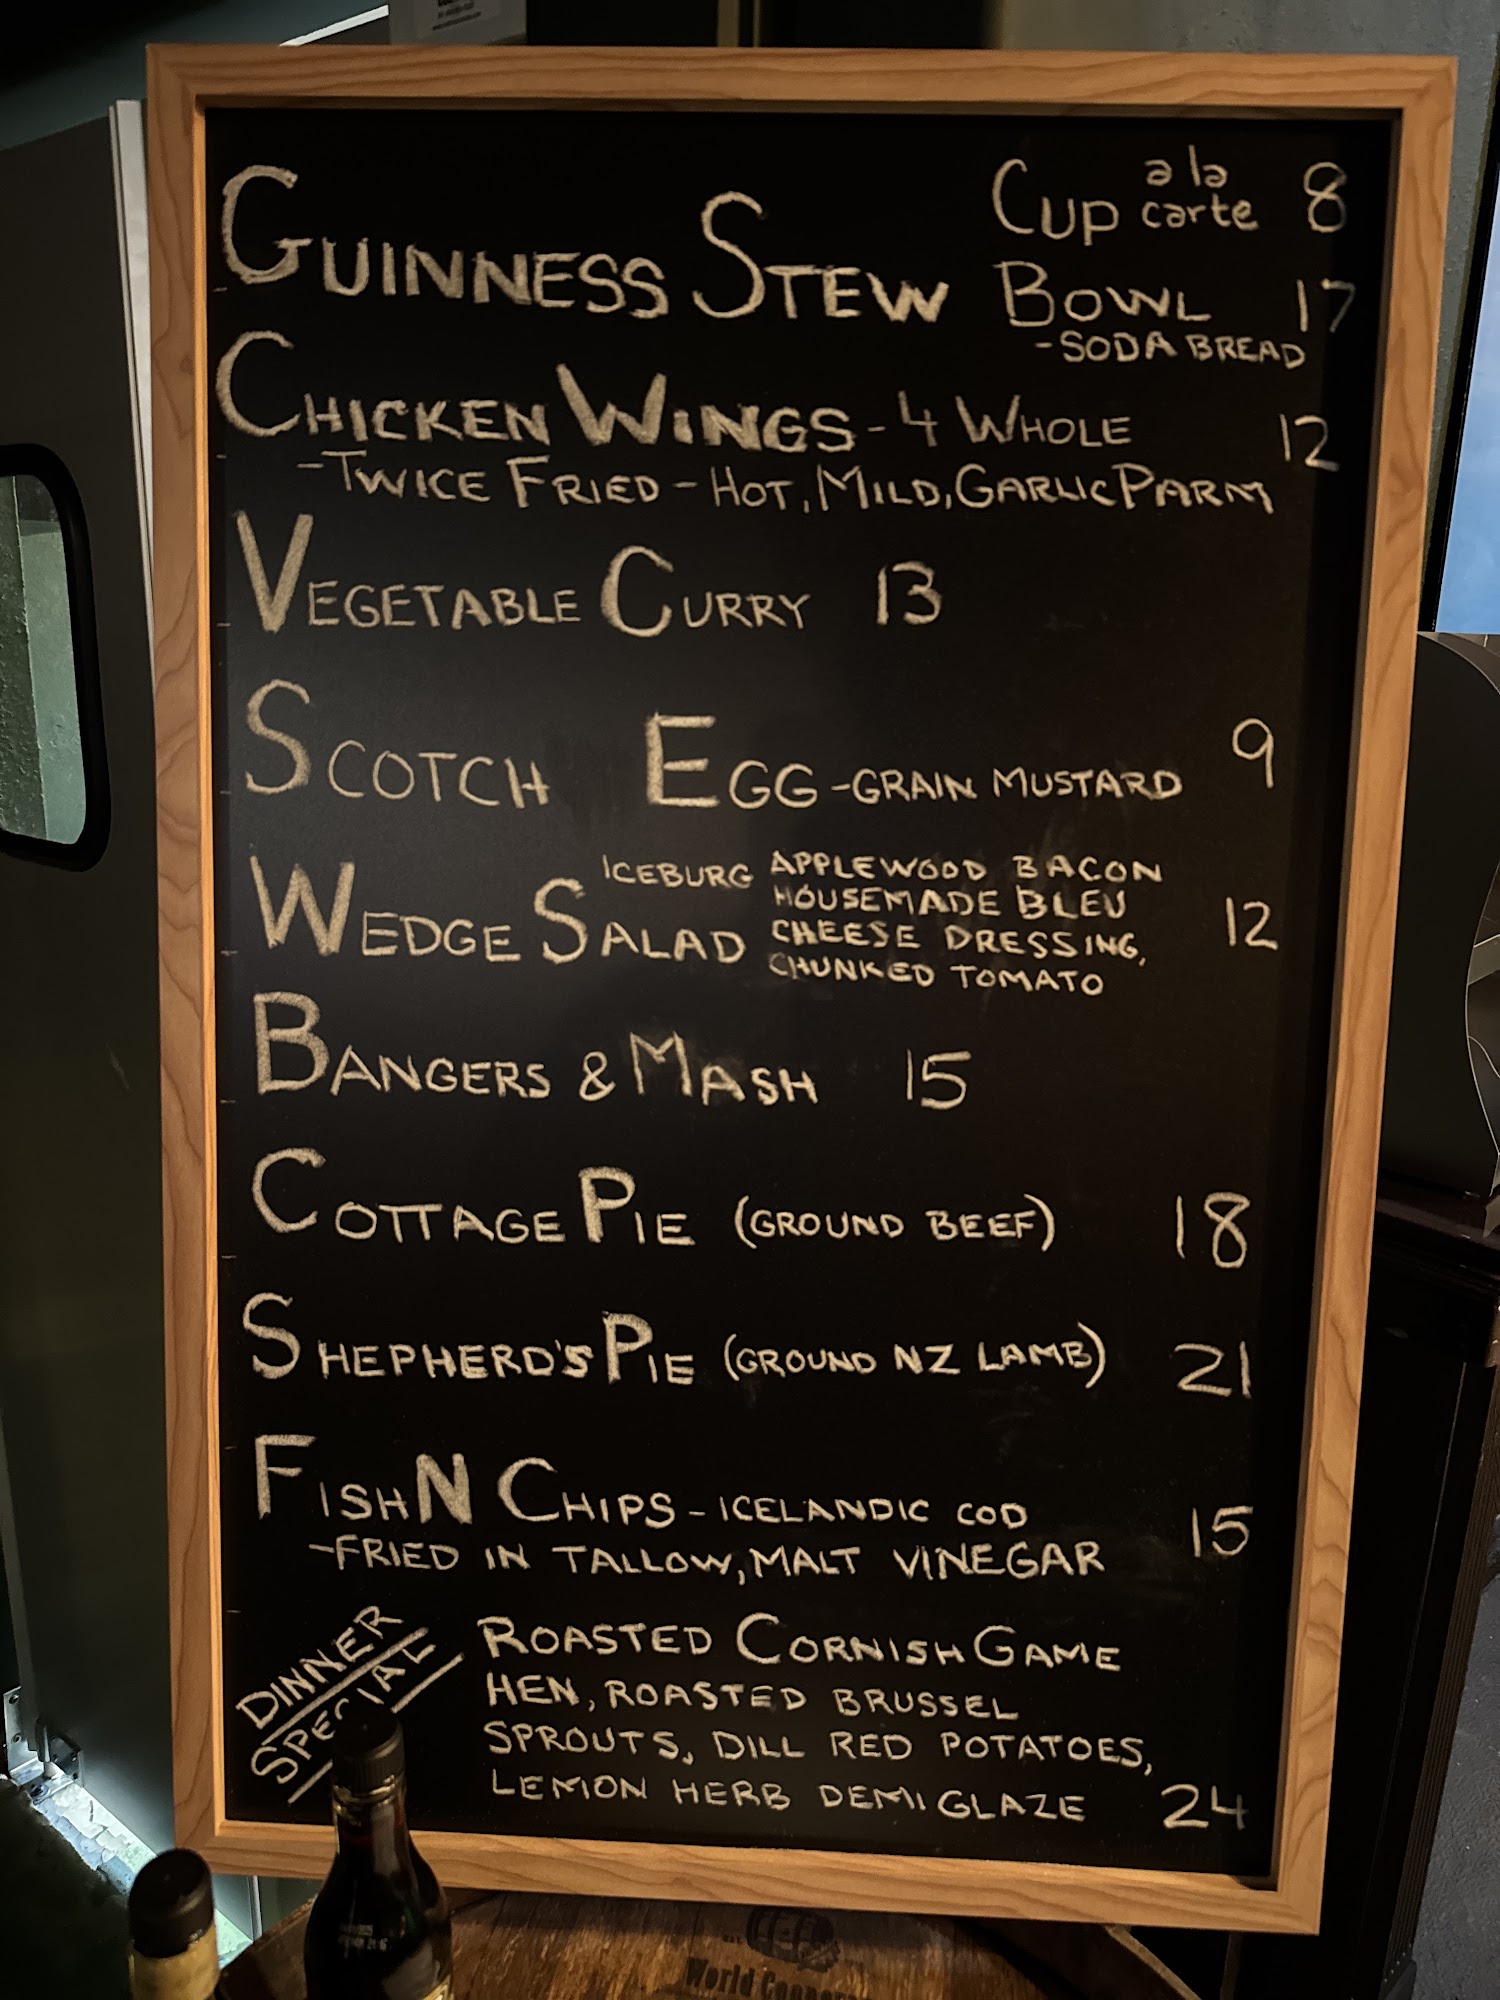 GUINNESS STEW
Cup a la carte 8
BOWL 17
-SODA BREAD
CHICKEN WINGS - 4 WHOLE 12
-TWICE FRIED - HOT, MILD, GARLIC PARM
VEGETABLE CURRY 13
SCOTCH EGG -GRAIN MUSTARD 9
WEDGE SALAD 12
ICEBURG APPLEWOOD BACON
HOUSEMADE BLEU
CHEESE DRESSING,
CHUNKED TOMATO
BANGERS & MASH 15
COTTAGE PIE (GROUND BEEF) 18
SHEPHERD'S PIE (GROUND NZ LAMB) 21
FISH N CHIPS - ICELANDIC COD 15
-FRIED IN TALLOW, MALT VINEGAR
DINNER
SPECIAL
ROASTED CORNISH GAME
HEN, ROASTED BRUSSEL
SPROUTS, DILL RED POTATOES,
LEMON HERB DEMI GLAZE 24
World